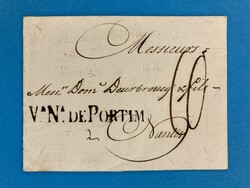 Messieurs
Mess.rs Dom.e Deurbroucq & fils
VªNª DE PORTIM
à Nantes